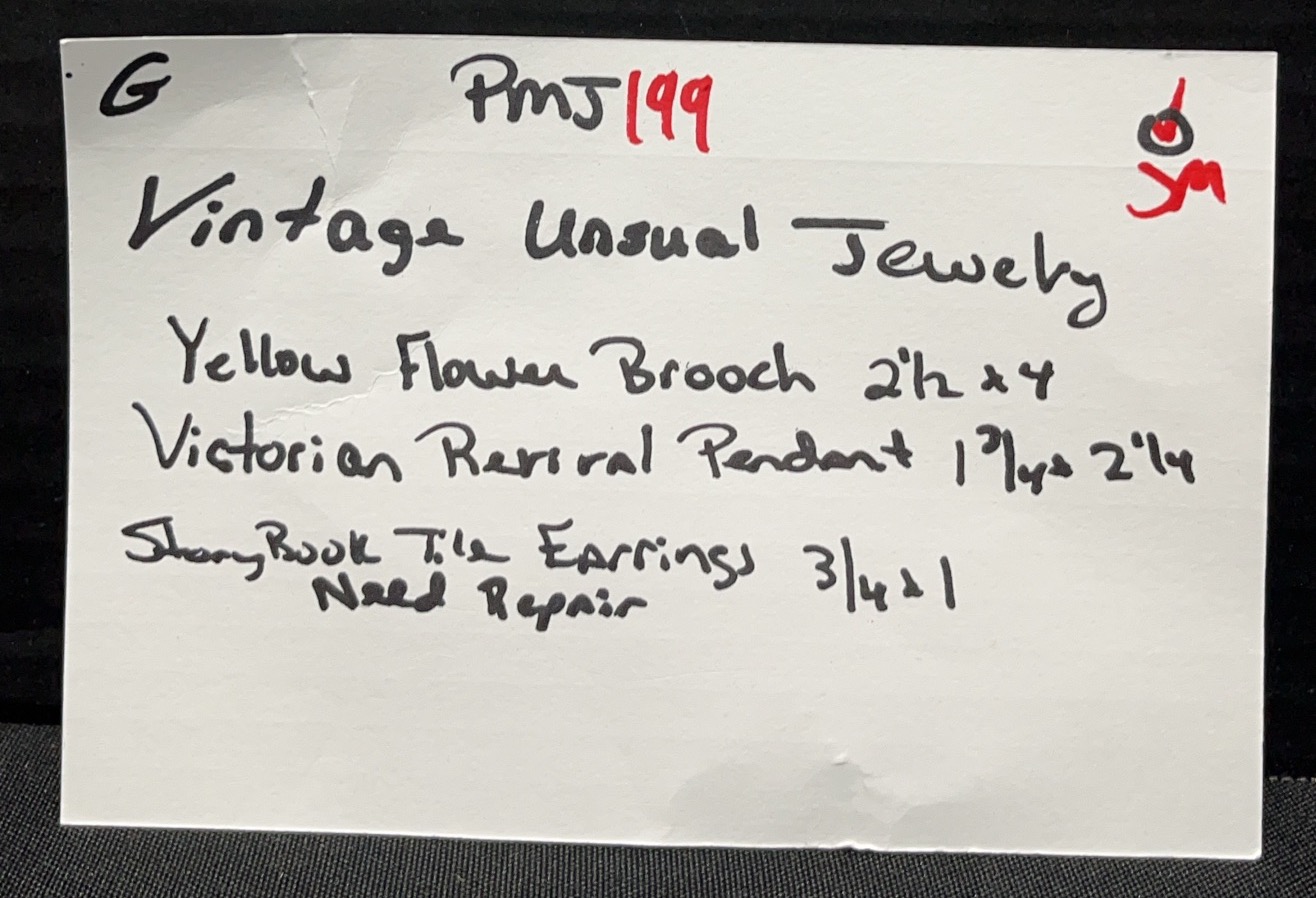 G PMJ199
JM
Vintage Unsual Jewelry
Yellow Flower Brooch 2 1/2 x 4
Victorian Revival Pendant 1 3/4 x 2 1/4
StoryBook Tile Earrings 3/4 x 1
Need Repair